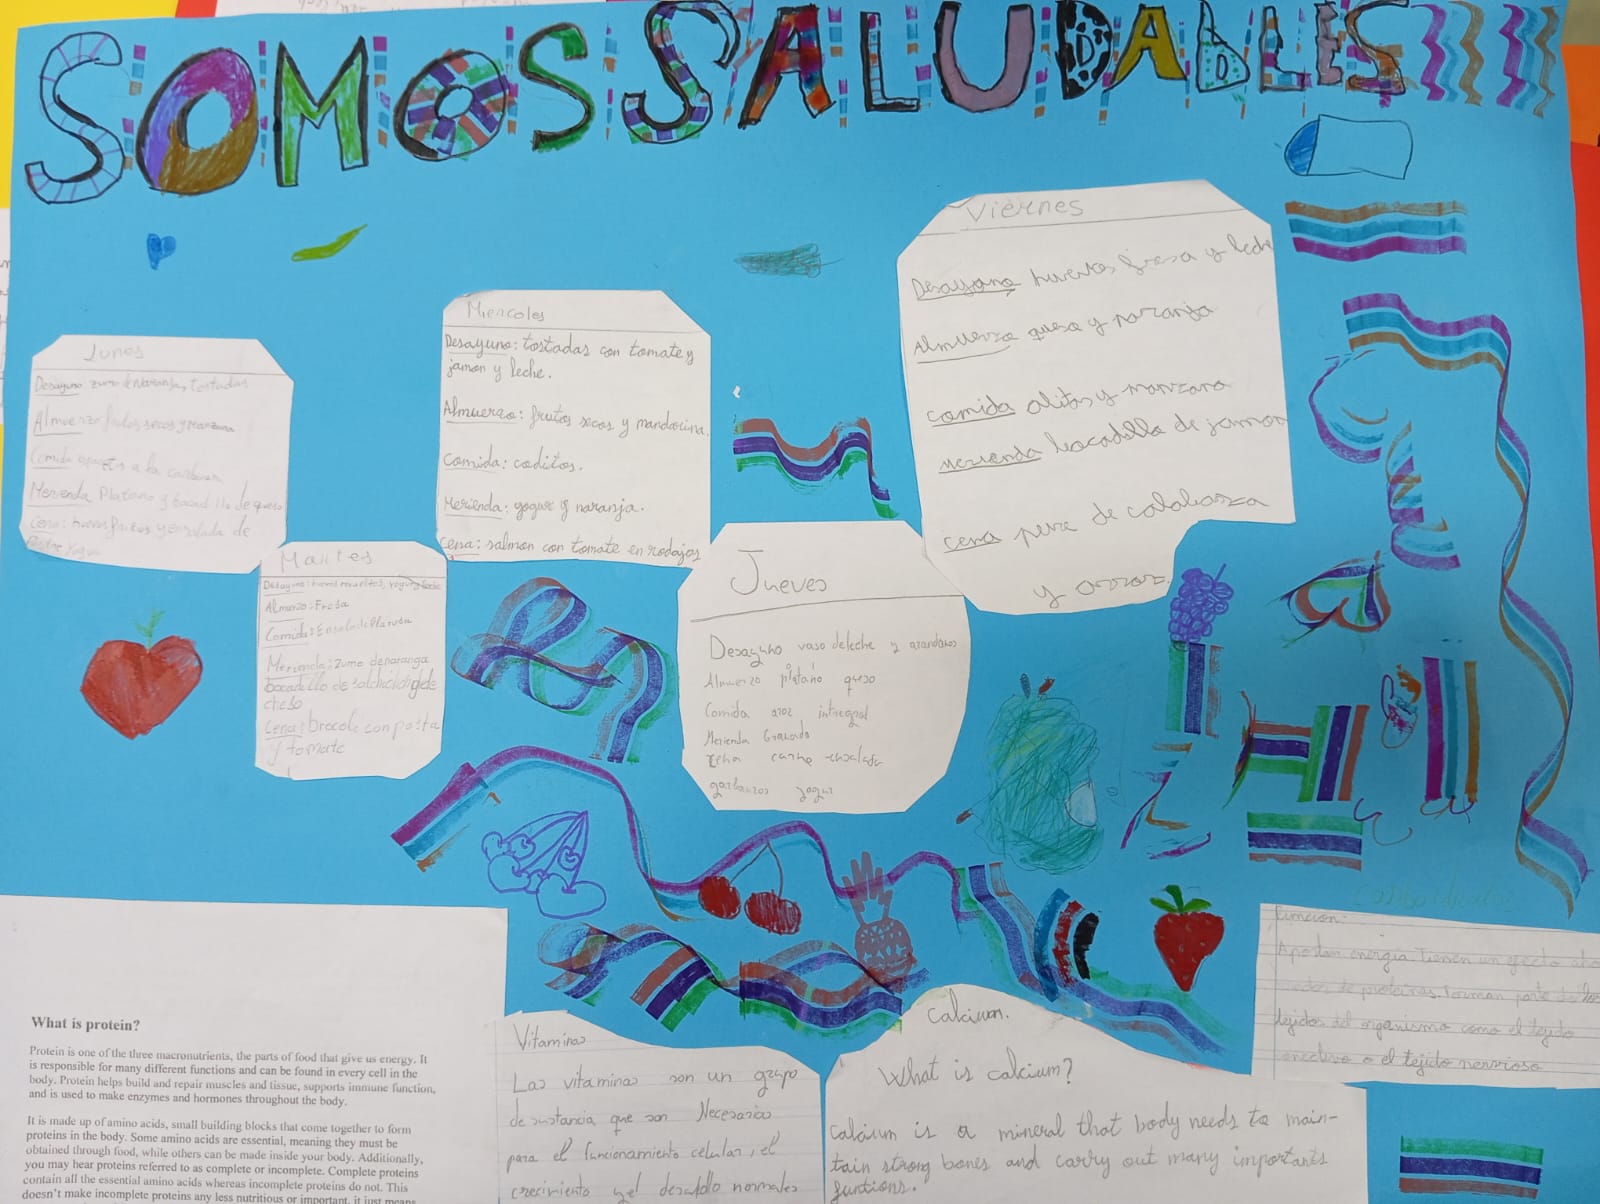 SOMOS SALUDABLES
Lunes
Desayuno: zumo de naranja, tostadas
Almuerzo frutos secos y manzana
Comida a la
Merienda Platano y de queso
Cena: huevos fritos y ensalada de
Postre Yogur
Martes
Desayuno: huevos revueltos, yogur
Almerzo: Freda
Comida: Ensalada
Merienda: zumo denaranga
bocadillo de
cheso
Cena: brocole con pasta
y tomate
Miercoles
Desayuno: tostadas con tomate y
jamon y leche.
Almuerzo: frutos secos y mandarina.
Comida: coditos.
Merienda: yogur y naranja.
Cena: salmon con tomate en rodajas
Jueves
Desayuno vaso deleche y arandanos
Almuerzo platano queso
Comida aroz intregral
Merienda Granada
cena carne ensalada
garbanzos yogur
Viernes
Desayuno huevos fresa y leche
Almuerzo queso y naranja
comida alitas y manzana
merienda bocadillo de jamon
cena pure de calabaza
y arroz.
What is protein?
Protein is one of the three macronutrients, the parts of food that give us energy. It
is responsible for many different functions and can be found in every cell in the
body. Protein helps build and repair muscles and tissue, supports immune function,
and is used to make enzymes and hormones throughout the body.
It is made up of amino acids, small building blocks that come together to form
proteins in the body. Some amino acids are essential, meaning they must be
obtained through food, while others can be made inside your body. Additionally,
you may hear proteins referred to as complete or incomplete. Complete proteins
contain all the essential amino acids whereas incomplete proteins do not. This
doesn't make incomplete proteins any less nutritious or important, it just means
Vitaminas
Las vitaminas son un grupo
de sustancia que son Necesarias
para el funcionamiento celular, el
crecimiento y el desarollo normales
Calcium.
What is calcium?
Calcium is a mineral that body needs to main-
tain strong bones and carry out many importants
funtions.
Carbohidratos
Funcion:
Aportan energia tienen un efecto aho
rrador de proteinas. Forman parte de los
tejidos del organismo como el tejido
conectivo o el tejido nervioso